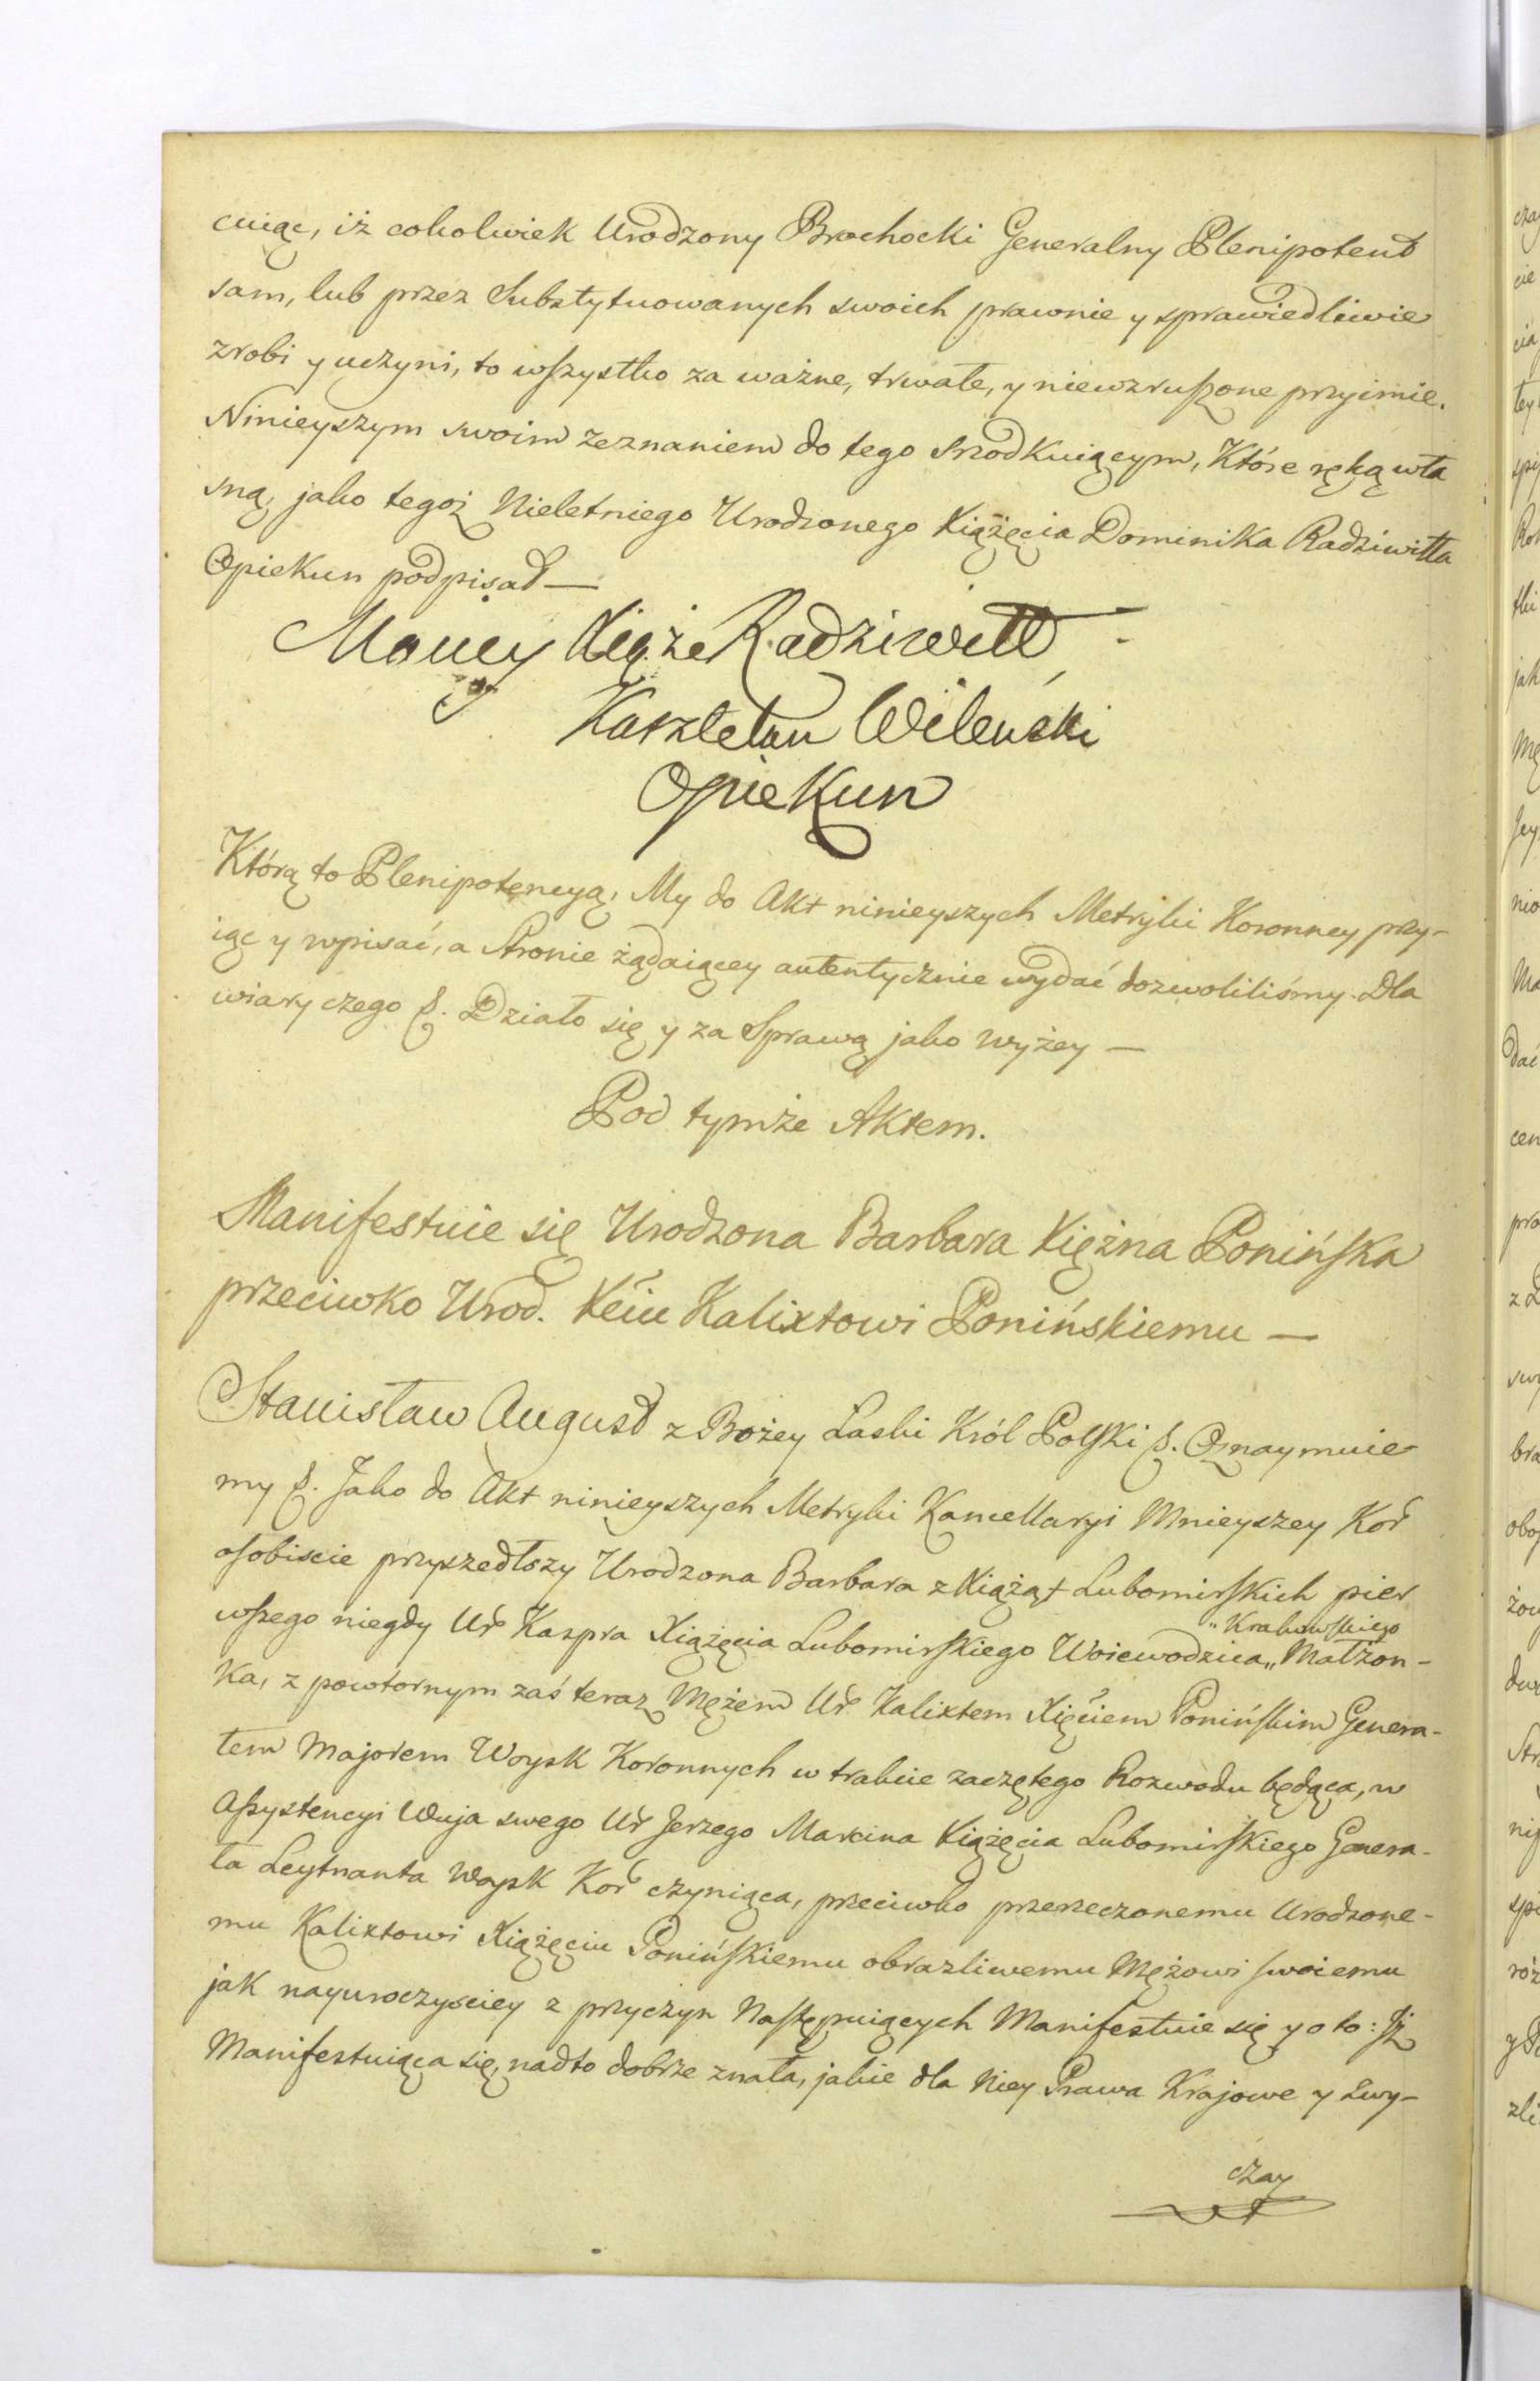 cuiąc, iż cokolwiek Urodzony Brochocki Generalny Plenipotent
sam, lub przez Substytuowanych swoich prawnie y sprawiedliwie
zrobi y uczyni, to wszystko za ważne, trwałe, y niewzruszone przyimie.
Ninieyszym swoim zeznaniem do tego srzodkuiącym, Które ręką wła
sną, jako tegoż Nieletniego Urodzonego Xiążęcia Dominika Radziwiłła
Opiekun podpisał —
Maciey Xiąże Radziwiłł
Kasztelan Wileński
Opiekun
Którą to Plenipotencyą, My do Akt ninieyszych Metryki Koronney przy-
iąc y wpisać, a Stronie żądaiącey autentycznie wydać dozwoliliśmy. Dla
wiary czego &. Działo się y za Sprawą jako wyżey —
Pod tymże Aktem.
Manifestuie się Urodzona Barbara Xiężna Ponińska
przeciwko Urod. Xciu Kalixtowi Ponińskiemu —
Stanisław August z Bożey Łaski Król Polski &. Oznaymuie
my &. Jako do Akt ninieyszych Metryki Kancellaryi Mnieyszey Kor
osobiscie przyszedłszy Urodzona Barbara z Xiążąt Lubomirskich pier
wszego niegdy Ur Kaspra Xiążęcia Lubomirskiego Woiewodzica „Krakowskiego„ Małżon-
ka, z powtornym zaś teraz Mężem Ur Kalixtem Xięciem Ponińskim Genera-
łem Majorem Woysk Koronnych w trakcie zaczętego Rozwodu będąca, w
Assystencyi Wuja swego Ur Jerzego Marcina Xiążęcia Lubomirskiego Genera-
ła Leytnanta Woysk Kor czyniąca, przeciwko przerzeczonemu Urodzone-
mu Kalixtowi Xiążęciu Ponińskiemu obrazliwemu Mężowi swoiemu
jak nayuroczysciey z przyczyn Następuiących Manifestuie się y o to: Jż
Manifestuiąca się, nadto dobrze znała, jakie dla Niey Prawa Krajowe y Zwy-
czay